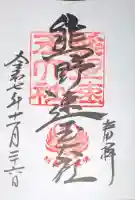 奉拝
熊野速玉大社
令和七年十一月二十六日